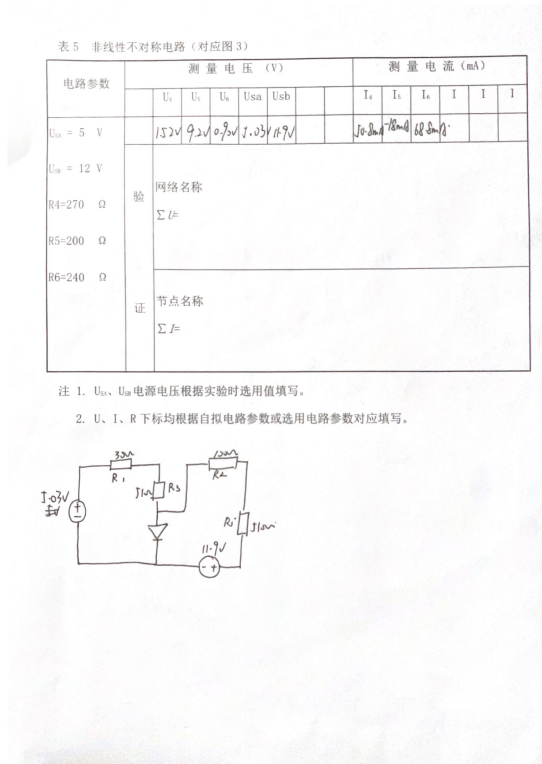 表 5 非线性不对称电路（对应图 3）
电路参数 测 量 电 压 （V） 测 量 电 流（mA）
U₄ U₅ U₆ Usa Usb I₄ I₅ I₆ I I I
U_SA = 5 V 1.52V 9.2V 0.90V 5.03V 11.9V 50.8mA -18mA 68.8mA
U_SB = 12 V
R4=270 Ω
R5=200 Ω
R6=240 Ω
验
证
网络名称
∑U=
节点名称
∑I=
注 1. U_SA、U_SB 电源电压根据实验时选用值填写。
2. U、I、R 下标均根据自拟电路参数或选用电路参数对应填写。
R₁
51Ω R₃
R₂
5.03V
510Ω
11.9V